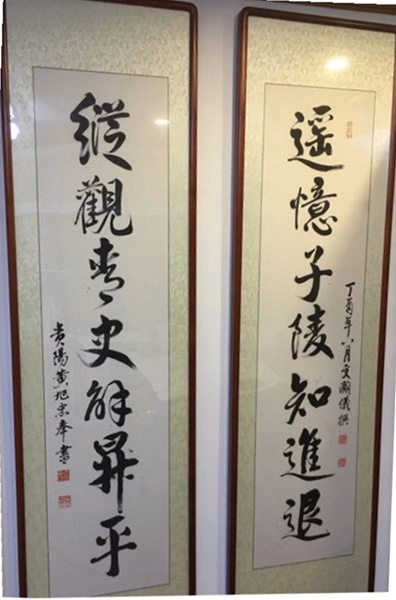 遥憶子陵知進退
丁酉年八月文瀾儀撰
縱觀青史解昇平
貴陽黃旭宗奉書